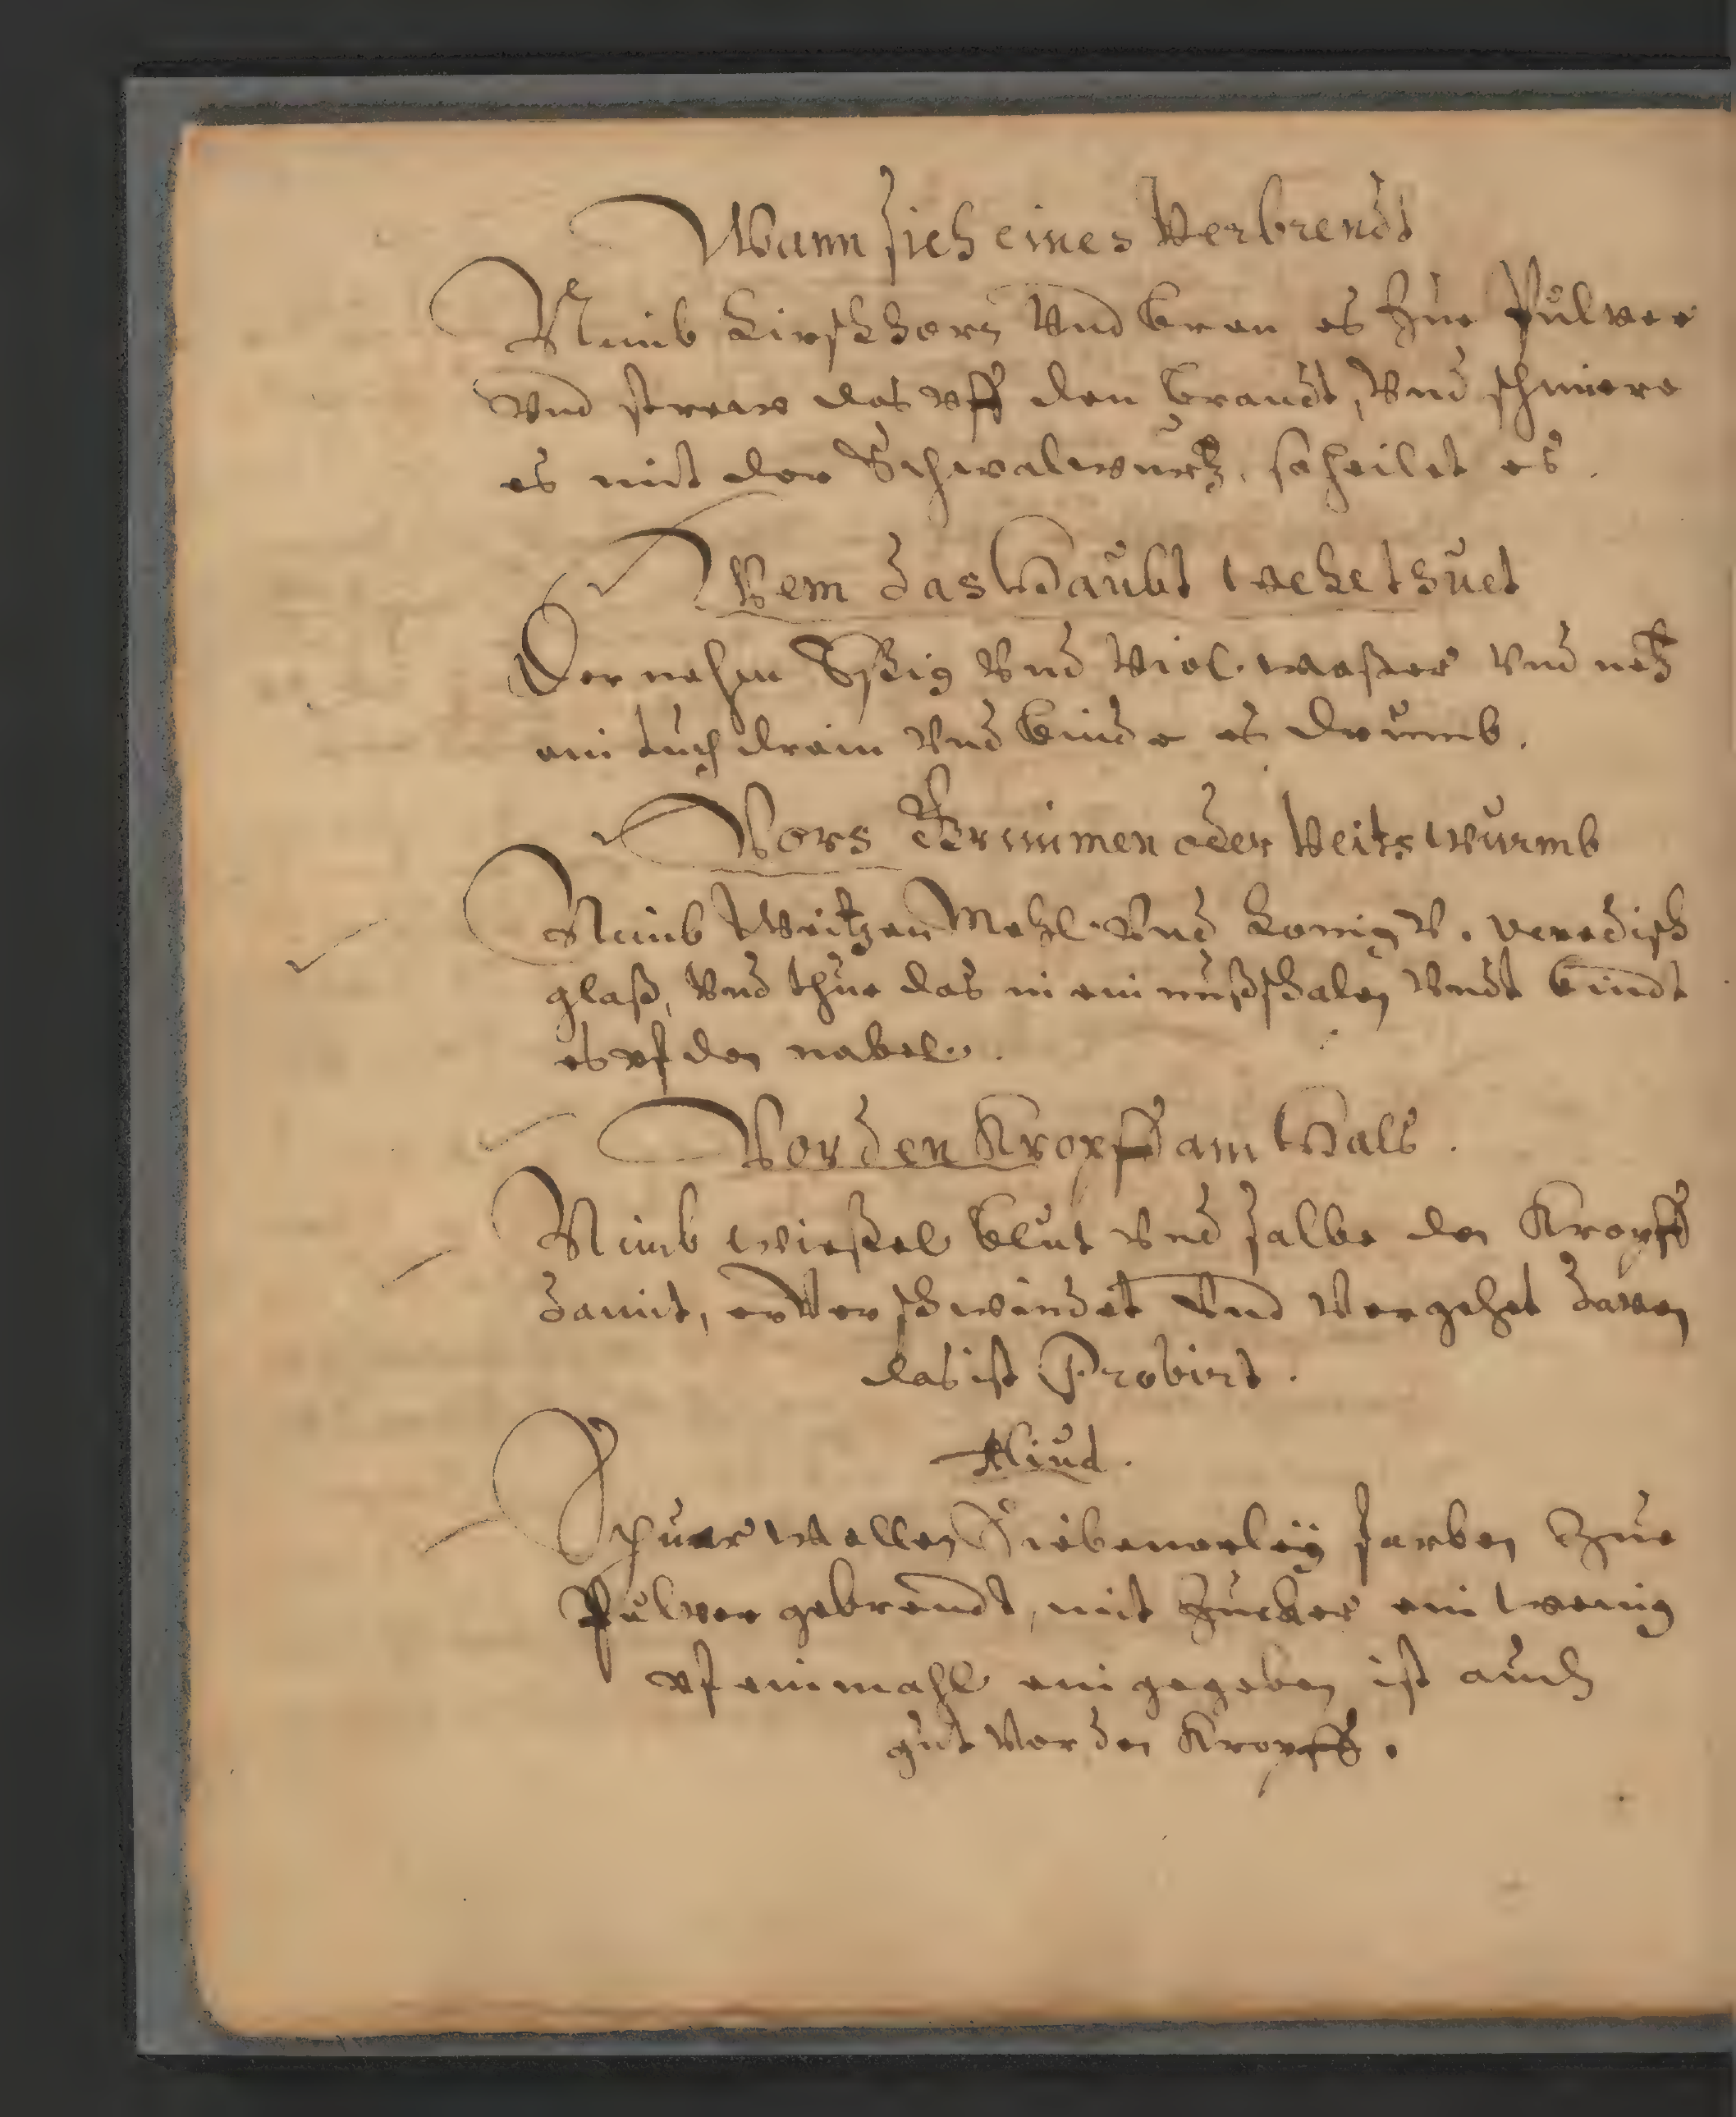 Wann sich eines Verbrendt
Nimb Hirschhorn Vnd bren es Zue Pulver
vnd strew das vff den brandt, Vnd schmiere
es mit der Schwalwurtz, so heilet es.
Wem das Haubt wehe thuet
Der nehm Eßig Vnd Viol waßer Vnd netz
ein tuch drein Vnd binde es drumb.
Vors Grimmen oder Veitswurmb
Nimb Weitzen Mehl Vnd Honig V. venedisch
glaß, Vnd thue das in ein nußschalen Vndt bindt
es vf den nabel.
Vor den Kropff am Hals.
Nimb wießel blut Vnd salbe den Kropff
damit, er Verschwindet Vnd Vergehet davon
das ist Probirt.
Aliud.
wullen Siebenerley farben Zue
Pulver gebrendt, mit Zucker ein wenig
vf einmahl ein gegeben ist auch
gut Vor den Kropff.